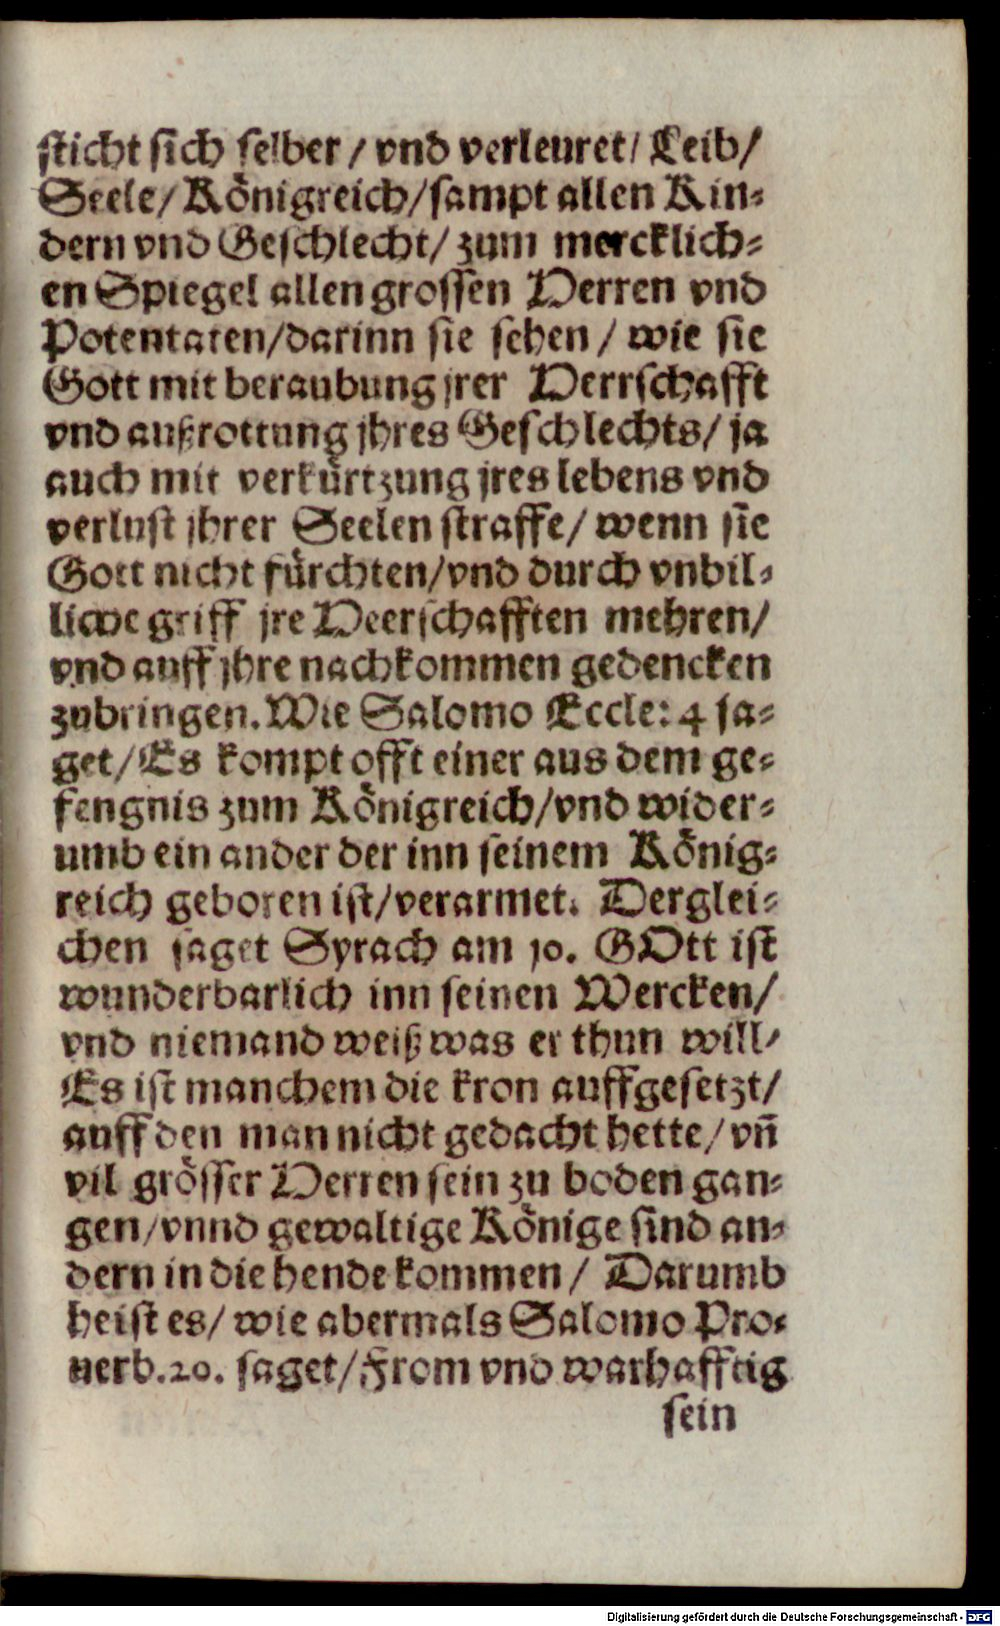 sticht sich selber / vnd verleuret / Leib /
Seele / Königreich / sampt allen Kin⸗
dern vnd Geschlecht / zum mercklich⸗
en Spiegel allen grossen Herren vnd
Potentaten / darinn sie sehen / wie sie
Gott mit beraubung jrer Herrschafft
vnd außrottung jhres Geschlechts / ja
auch mit verkürtzung jres lebens vnd
verlust jhrer Seelen straffe / wenn sie
Gott nicht fürchten / vnd durch vnbil⸗
liche griff jre Heerschafften mehren /
vnd auff jhre nachkommen gedencken
zubringen. Wie Salomo Eccle: 4 sa⸗
get / Es kompt offt einer aus dem ge⸗
fengnis zum Königreich / vnd wider⸗
umb ein ander der inn seinem König⸗
reich geboren ist / verarmet. Derglei⸗
chen saget Syrach am 10. GOtt ist
wunderbarlich inn seinen Wercken /
vnd niemand weiß was er thun will /
Es ist manchem die kron auffgesetzt /
auff den man nicht gedacht hette / vñ
vil grösser Herren sein zu boden gan⸗
gen / vnnd gewaltige Könige sind an⸗
dern in die hende kommen / Darumb
heist es / wie abermals Salomo Pro⸗
uerb. 20. saget / From vnd warhafftig
sein
Digitalisierung gefördert durch die Deutsche Forschungsgemeinschaft - DFG